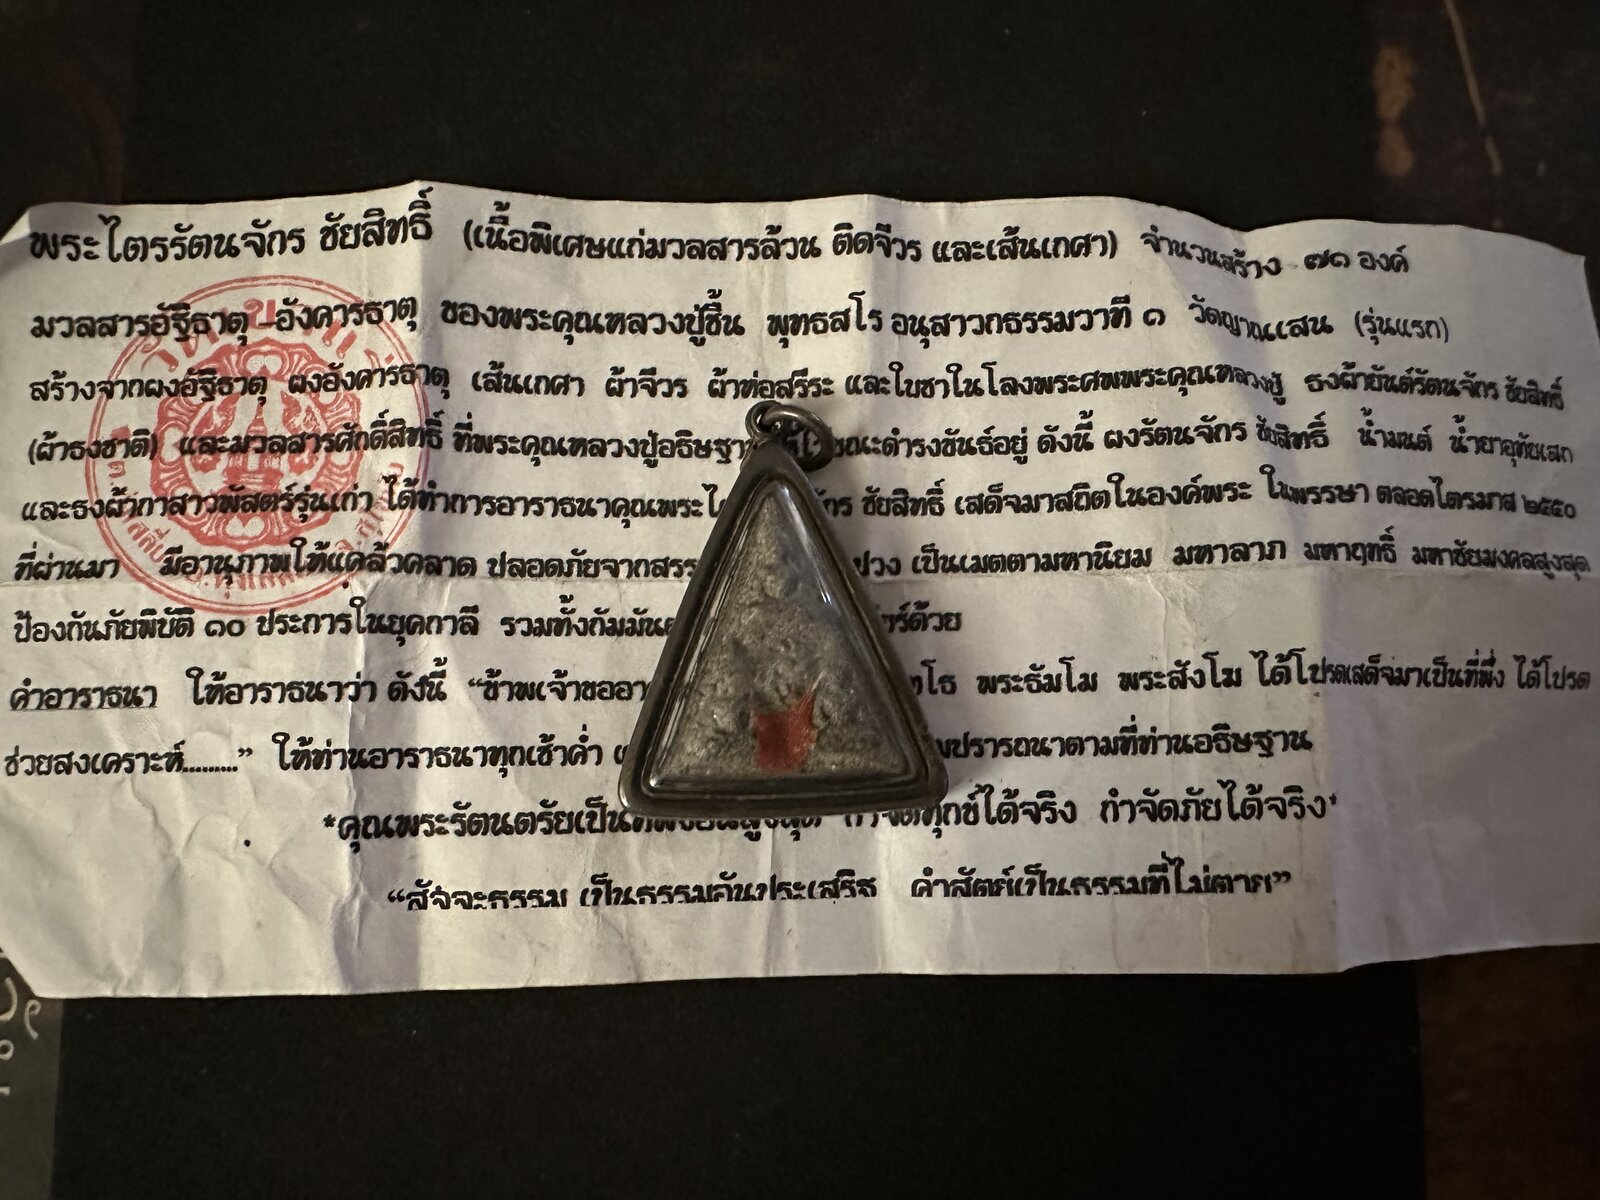 พระไตรรัตนจักร ชัยสิทธิ์ (เนื้อพิเศษแก่มวลสารล้วน ติดจีวร และเส้นเกศา) จำนวนสร้าง ๗๑ องค์
มวลสารอัฐิธาตุ-อังคารธาตุ ของพระคุณหลวงปู่ชื้น พุทธสโร อนุสาวกธรรมวาที ๑ วัดญาณเสน (รุ่นแรก)
สร้างจากผงอัฐิธาตุ ผงอังคารธาตุ เส้นเกศา ผ้าจีวร ผ้าห่อสรีระ และใบชาในโลงพระศพพระคุณหลวงปู่ ธงผ้ายันต์รัตนจักร ชัยสิทธิ์
(ผ้าธงชาติ) และมวลสารศักดิ์สิทธิ์ ที่พระคุณหลวงปู่อธิษฐาน ขณะดำรงขันธ์อยู่ ดังนี้ ผงรัตนจักร ชัยสิทธิ์ น้ำมนต์ น้ำยาอุทัยเสก
และธงผ้ากาสาวพัสตร์รุ่นเก่า ได้ทำการอาราธนาคุณพระไ จักร ชัยสิทธิ์ เสด็จมาสถิตในองค์พระ ในพรรษา ตลอดไตรมาส ๒๕๕๐
ที่ผ่านมา มีอานุภาพให้แคล้วคลาด ปลอดภัยจากสรร ปวง เป็นเมตตามหานิยม มหาลาภ มหาฤทธิ์ มหาชัยมงคลสูงสุด
ป้องกันภัยพิบัติ ๑๐ ประการในยุคกาลี รวมทั้งกัมมัน ด้วย
คำอาราธนา ให้อาราธนาว่า ดังนี้ “ข้าพเจ้าขออา พระธัมโม พระสังโฆ ได้โปรดเสด็จมาเป็นที่พึ่ง ได้โปรด
ช่วยสงเคราะห์.........” ให้ท่านอาราธนาทุกเช้าค่ำ ปรารถนาตามที่ท่านอธิษฐาน
*คุณพระรัตนตรัยเป็นที่พึ่งอันสูงสุด กำจัดทุกข์ได้จริง กำจัดภัยได้จริง*
“สัจจะธรรม เป็นธรรมอันประเสริฐ คำสัตย์เป็นธรรมที่ไม่ตาย”